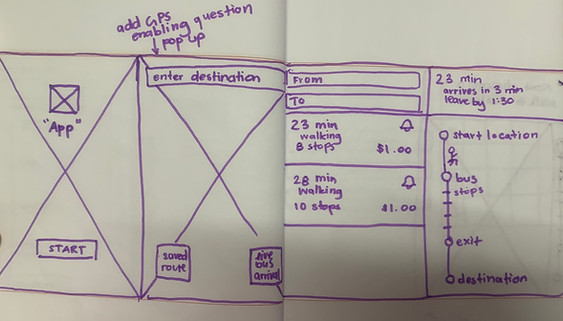 add GPS
enabling question
pop up
"App"
START
enter destination
saved
route
live
bus
arrival
From
To
23 min
walking
8 stops
$1.00
28 min
walking
10 stops
$1.00
23 min
arrives in 3 min
leave by 1:30
start location
bus
stops
exit
destination